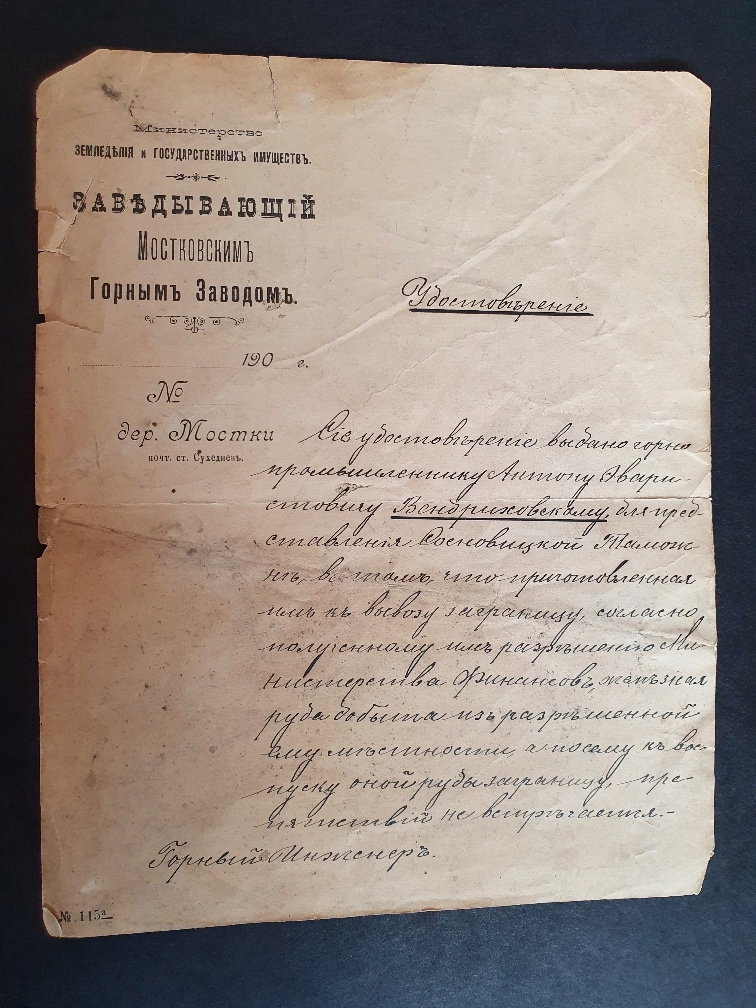 Министерство
ЗЕМЛЕДѢЛІЯ и ГОСУДАРСТВЕННЫХЪ ИМУЩЕСТВЪ.
ЗАВѢДЫВАЮЩІЙ
Мостковскимъ
Горнымъ Заводомъ.
190 г.
№
дер. Мостки
почт. ст. Сухедневъ.
Удостовѣреніе
Сіе удостовѣреніе выдано горно
промышленнику Антону Эвари-
стовичу Вендриховскому, для пред-
ставленія Сосновицкой Тамож-
нѣ, въ томъ, что приготовленная
имъ къ вывозу заграницу, согласно
полученному имъ разрѣшенію Ми-
нистерства Финансовъ, желѣзная
руда добыта изъ разрѣшенной
ему мѣстности, а посему къ вы-
пуску оной руды заграницу, пре-
пятствій не встрѣчается.-
Горный Инженеръ.
№ 115а